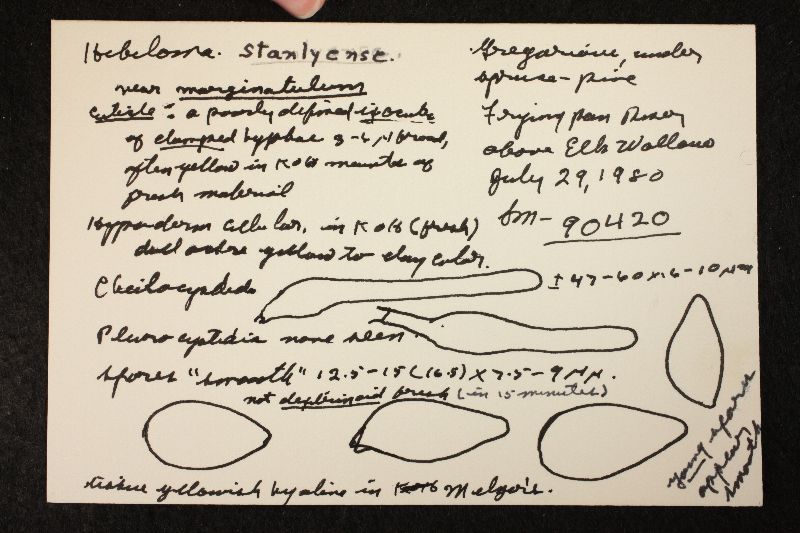 Hebeloma. stanlyense.
near marginatulum
cuticle : a poorly defined ixocutis
of clamped hyphae 3-6 µ broad,
often yellow in KOH mounts of
fresh material
Hypoderm cellular, in KOH (fresh)
dull ochre yellow to clay color.
Cheilocystidia ± 47-60 x 6-10 µm
Pleurocystidia none seen.
spores "smooth" 12.5-15 (16.5) x 7.5-9 µm.
not dextrinoid fresh (in 15 minutes)
tissue yellowish hyaline in KOH Melzer's.
Gregarious, under
spruce-pine
Frying pan River
above Elk Wallow
July 29, 1980
Sm-90420
young spores
appear
smooth